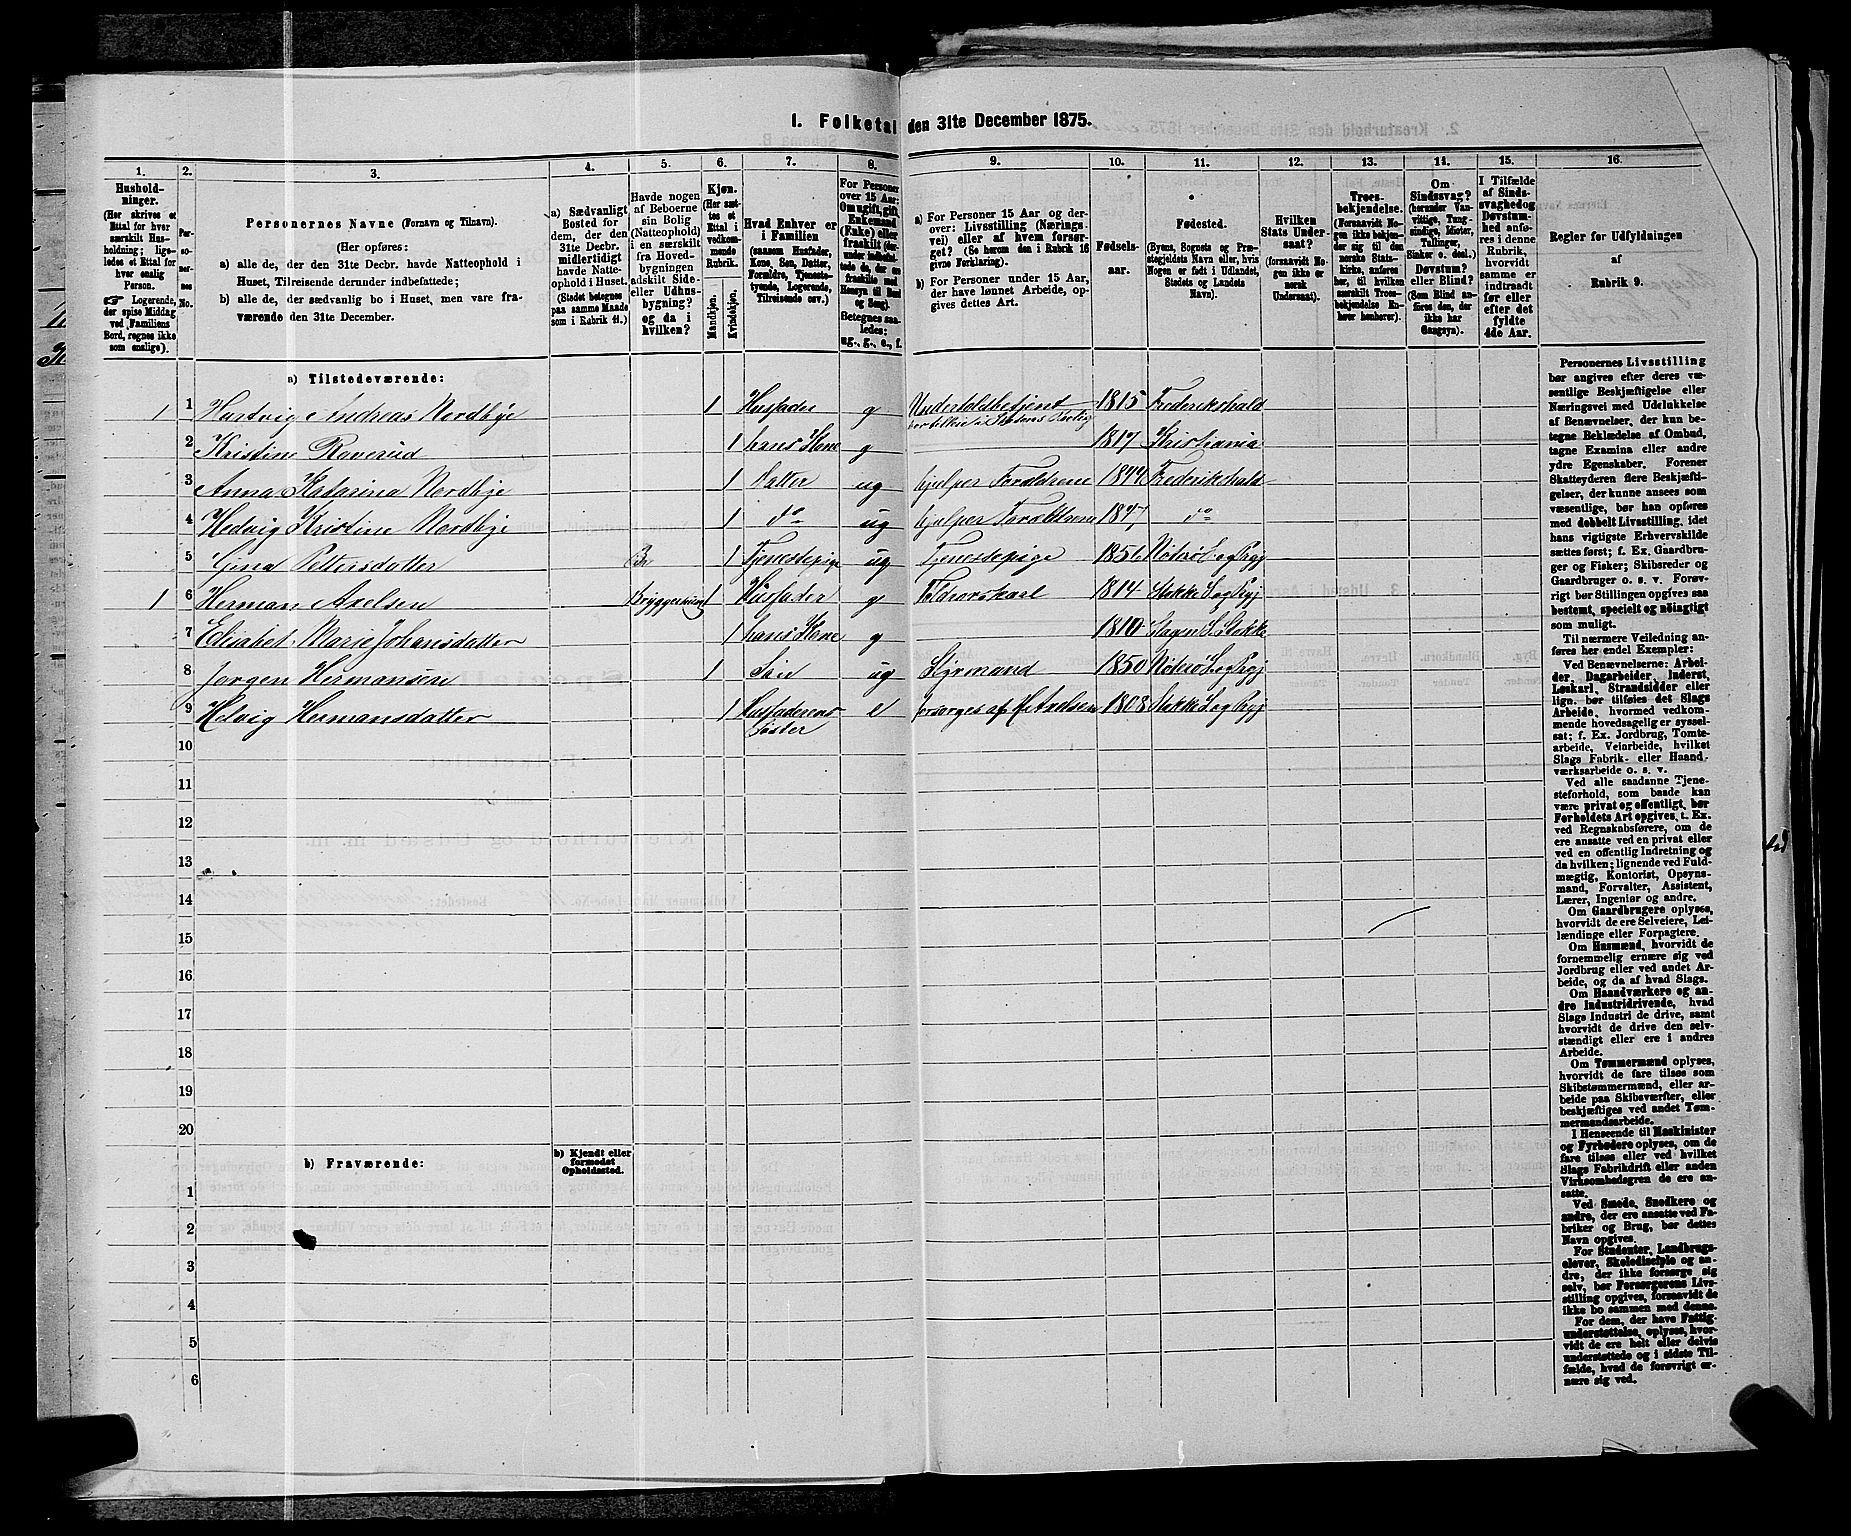 I. Folketal den 31te December 1875.
1. 2. 3. 4. 5. 6. 7. 8. 9. 10. 11. 12. 13. 14. 15. 16.
Husholdninger.
(Her skrives et
Ettal for hver
særskilt Husholdning; ligeledes
et Ettal for
hver enslig
Person.
Logerende,
der spise Middag
ved Familiens
Bord, regnes ikke
som enslige).
Personernes No.
Personernes Navne (Fornavn og Tilnavn).
(Her opføres:
a) alle de, der den 31te Decbr. havde Natteophold i
Huset, Tilreisende derunder indbefattede;
b) alle de, der sædvanlig bo i Huset, men vare fraværende
den 31te December.
a) Sædvanligt
Bosted for
dem, der den
31te Decbr.
midlertidigt
havde Natteophold
i Huset.
(Stedet betegnes
paa samme Maade
som i Rubrik 11.)
Havde nogen
af Beboerne
sin Bolig
(Natteophold)
i en særskilt
fra Hovedbygningen
adskilt Side-
eller Udhusbygning?
og da i
hvilken?
Kjøn.
(Her sættes
et
Ettal i
vedkommende
Rubrik.
Mandkjøn.
Kvindekjøn.
Hvad Enhver er
i Familien
(saasom Husfader,
Kone, Søn, Datter,
Forældre, Tjenestetyende,
Logerende,
Tilreisende osv.)
For Personer
over 15 Aar:
Om ugift, gift,
Enkemand
(Enke) eller
fraskilt
Betegnes saaledes:
ug., g., e., f.
a) For Personer 15 Aar og derover:
Livsstilling (Næringsvei)
eller af hvem forsørget?
(Se herom den i Rubrik 16
givne Forklaring).
b) For Personer under 15 Aar,
der have lønnet Arbeide, opgives
dettes Art.
Fødselsaar.
Fødested.
(Byens, Sognets og Præstegjeldets
Navn eller, hvis
Nogen er født i Udlandet,
Stedets og Landets
Navn).
Hvilken
Stats Undersaat?
(forsaavidt Nogen
ikke er
norsk
Undersaat).
Troesbekjendelse.
(Forsaavidt Nogen
ikke bekjender
sig til den
norske Statskirke,
anføres
her, til hvilken
særskilt Troesbekjendelse
Enhver
henhører).
Om
Sindssvag?
(herunder Vanvittige,
Tungsindige,
Idioter,
Tullinger,
Sinker o. desl.)
Døvstum?
eller Blind?
(Som Blind anføres
den, der
ikke har
Gangsyn).
I Tilfælde
af Sindssvaghed
og
Døvstumhed
anføres
i denne
Rubrik,
hvorvidt
samme er
indtraadt
før eller
efter det
fyldte
4de Aar.
Regler for Udfyldningen
af
Rubrik 9.
a) Tilstedeværende:
1 1 Hartvig Andreas Nordbye 1 Husfader g Undertoldbetjent 1815 Frederikshald
2 Kristine Raverud 1 hans Kone g 1817 Kristiania
3 Anna Katarina Nordbye 1 Datter ug hjelper Forældrene 1844 Frederikshald
4 Hedvig Kristine Nordbye 1 do ug hjelper Forældrene 1847 do
5 Gina Pettersdatter 1 Tjenestepige ug Tjenestepige 1856 Nøterø S og Prgj
1 6 Herman Axelsen Bryggerhuset 1 Husfader g Føderaadskarl 1814 Stokke S og Prgj
7 Elisabet Marie Johansdatter 1 hans Kone g 1810 Slagen S. Stokke
8 Jørgen Hermansen 1 Søn ug Styrmand 1850 Nøterø S og Prgj
9 Helvig Hermansdatter 1 Husfaderens Søster e forsørges af H Axelsen 1808 Stokke S og Prgj
10
11
12
13
14
15
16
17
18
19
20
b) Fraværende:
b) Kjendt eller
formodet
Opholdssted.
1
2
3
4
5
6
Personernes Livsstilling
bør angives efter deres væsentlige
Beskjæftigelse eller
Næringsvei med Udelukkelse
af Benævnelser, der kun betegne
Beklædelse af Ombud,
tagne Examina eller andre
ydre Egenskaber. Forener
Skatteyderen flere Beskjæftigelser,
der kunne ansees som
væsentlige, bør han opføres
med dobbelt Livsstilling, idet
hans vigtigste Erhvervskilde
sættes først; f. Ex. Gaardbruger
og Fisker; Skibsreder og
Gaardbruger o. s. v. Forøvrigt
bør Stillingen opgives saa
bestemt, specielt og nøiagtigt
som muligt.
Til nærmere Veiledning anføres
her endel Exempler:
Ved Benævnelserne: Arbeider,
Dagarbeider, Inderst,
Løskarl, Strandsidder eller
lign. bør tilføies det Slags
Arbeide, hvormed vedkommende
hovedsagelig er sysselsat;
f. Ex. Jordbrug, Tomtearbeide,
Veiarbeide, hvilket
Slags Fabrik- eller Haandværksarbeide
o. s. v.
Ved alle saadanne Tjenesteforhold,
som baade kan
være privat og offentligt, bør
Forholdets Art opgives, t. Ex.
ved Regnskabsførere, om de
ere ansatte ved en privat eller
ved en offentlig Indretning og
da hvilken; lignende ved Fuldmægtig,
Kontorist, Opsynsmand,
Forvalter, Assistent,
Lærer, Ingeniør og andre.
Om Gaardbrugere oplyses,
hvorvidt de ere Selveiere, Leilændinge
eller Forpagtere.
Om Husmænd, hvorvidt de
fornemmelig ernære sig ved
Jordbrug eller ved andet Arbeide,
og da af hvad Slags.
Om Haandværkere og andre
Industridrivende, hvad
Slags Industri de drive, samt
hvorvidt de drive den selvstændigt
eller ere i andres
Arbeide.
Om Tømmermænd oplyses,
hvorvidt de fare tilsøs som
Skibstømmermænd, eller arbeide
paa Skibsværfter, eller
beskjæftiges ved andet Tømmermandsarbeide.
I Henseende til Maskinister
og Fyrbødere oplyses, om de
fare tilsøs eller ved hvilket
Slags Fabrikdrift eller anden
Virksomhedsgren de ere ansatte.
Ved Smede, Snedkere og
andre, der ere ansatte ved Fabriker
og Brug, bør dettes
Navn opgives.
For Studenter, Landbrugselever,
Skoledisciple og andre,
der ikke forsørge sig
selv, bør Forsørgerens Livsstilling
opgives, forsaavidt de
ikke bo sammen med denne.
For dem, der have Fattigunderstøttelse,
oplyses, hvorvidt
de ere helt eller delvis
understøttede og i sidste Tilfælde,
hvad de forøvrigt ernære
sig ved.